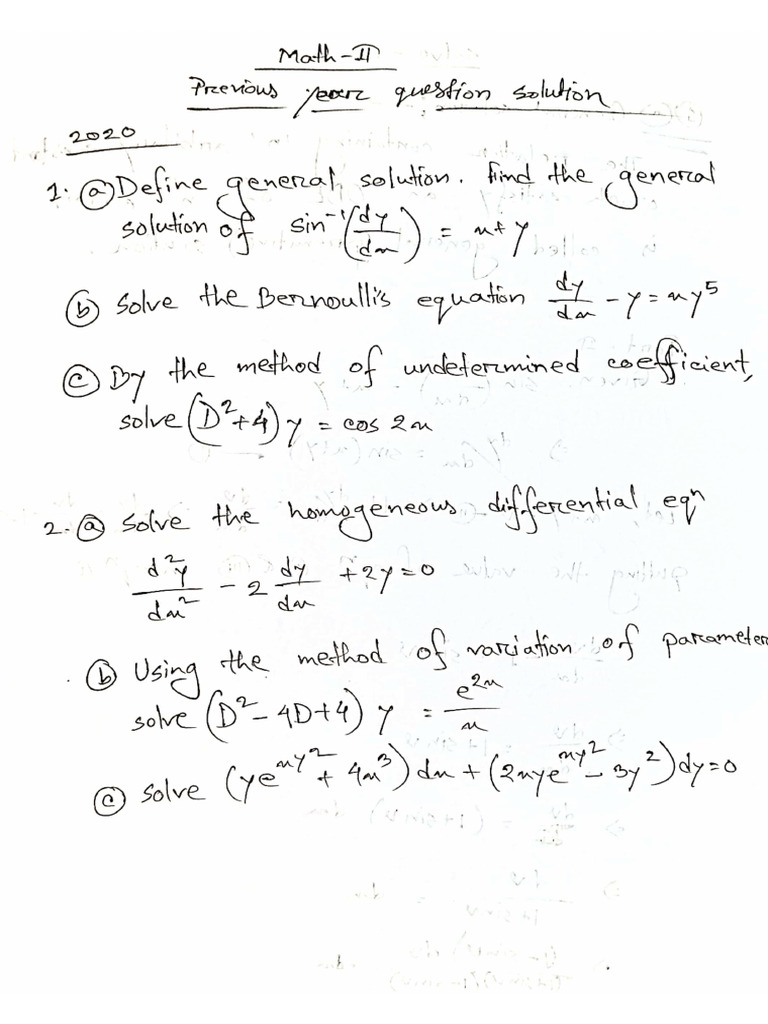 Math-II
Previous year question solution
2020
1. (a) Define general solution. Find the general
solution of sin⁻¹(dy/dx) = x+y
(b) Solve the Bernoulli's equation dy/dx - y = xy⁵
(c) By the method of undetermined coefficient,
solve (D²+4) y = cos 2x
2. (a) Solve the homogeneous differential eqⁿ
d²y/dx² - 2 dy/dx + 2y = 0
(b) Using the method of variation of parameter
solve (D² - 4D + 4) y = e²ˣ/x
(c) solve (ye^(xy²) + 4x³) dx + (2xye^(xy²) - 3y²) dy = 0